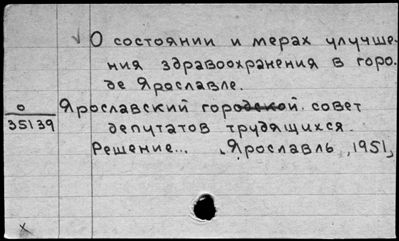 О состоянии и мерах улучше-
ния здравоохранения в горо-
де Ярославле.
О
35139
Ярославский городской совет
депутатов трудящихся.
Решение... Ярославль, 1951,
х